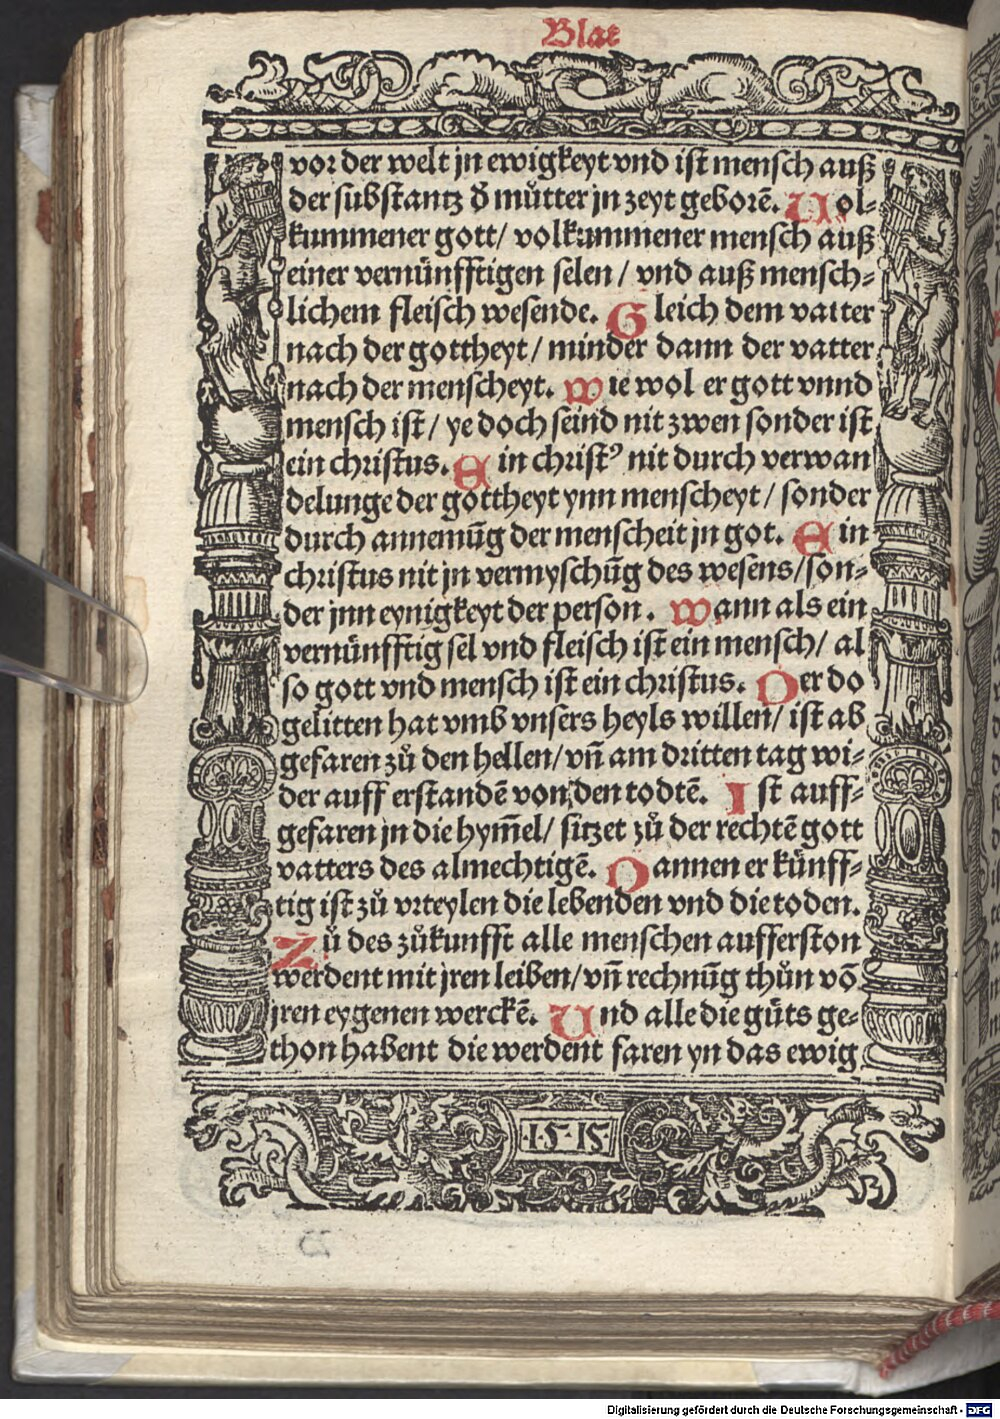 Blat
vor der welt jn ewigkeyt vnd ist mensch auß
der substantz d̕ můtter jn zeyt geborē. Uol-
kummener gott/ volkummener mensch auß
einer vernünfftigen selen / vnd auß mensch-
lichem fleisch wesende. Gleich dem vatter
nach der gottheyt/ minder dann der vatter
nach der menscheyt. Wie wol er gott vnnd
mensch ist/ ye doch seind nit zwen sonder ist
ein christus. Ein christꝰ nit durch verwan
delunge der gottheyt ynn menscheyt/ sonder
durch annemūg der menscheit jn got. Ein
christus nit jn vermyschūg des wesens/son-
der jnn eynigkeyt der person. Wann als ein
vernünfftig sel vnd fleisch ist ein mensch/ al
so gott vnd mensch ist ein christus. Der do
gelitten hat vmb vnsers heyls willen/ ist ab
gefaren zů den hellen/vn̄ am dritten tag wi-
der auff erstandē von den todtē. Ist auff-
gefaren jn die hym̄el/ sitzet zů der rechtē gott
vatters des almechtigē. Dannen er künff-
tig ist zů vrteylen die lebenden vnd die toden.
Zů des zůkunfft alle menschen aufferston
werdent mit jren leiben/vn̄ rechnūg thůn vō
jren eygenen werckē. Und alle die gůts ge-
thon habent die werdent faren yn das ewig
·1·5·15·
Digitalisierung gefördert durch die Deutsche Forschungsgemeinschaft - DFG